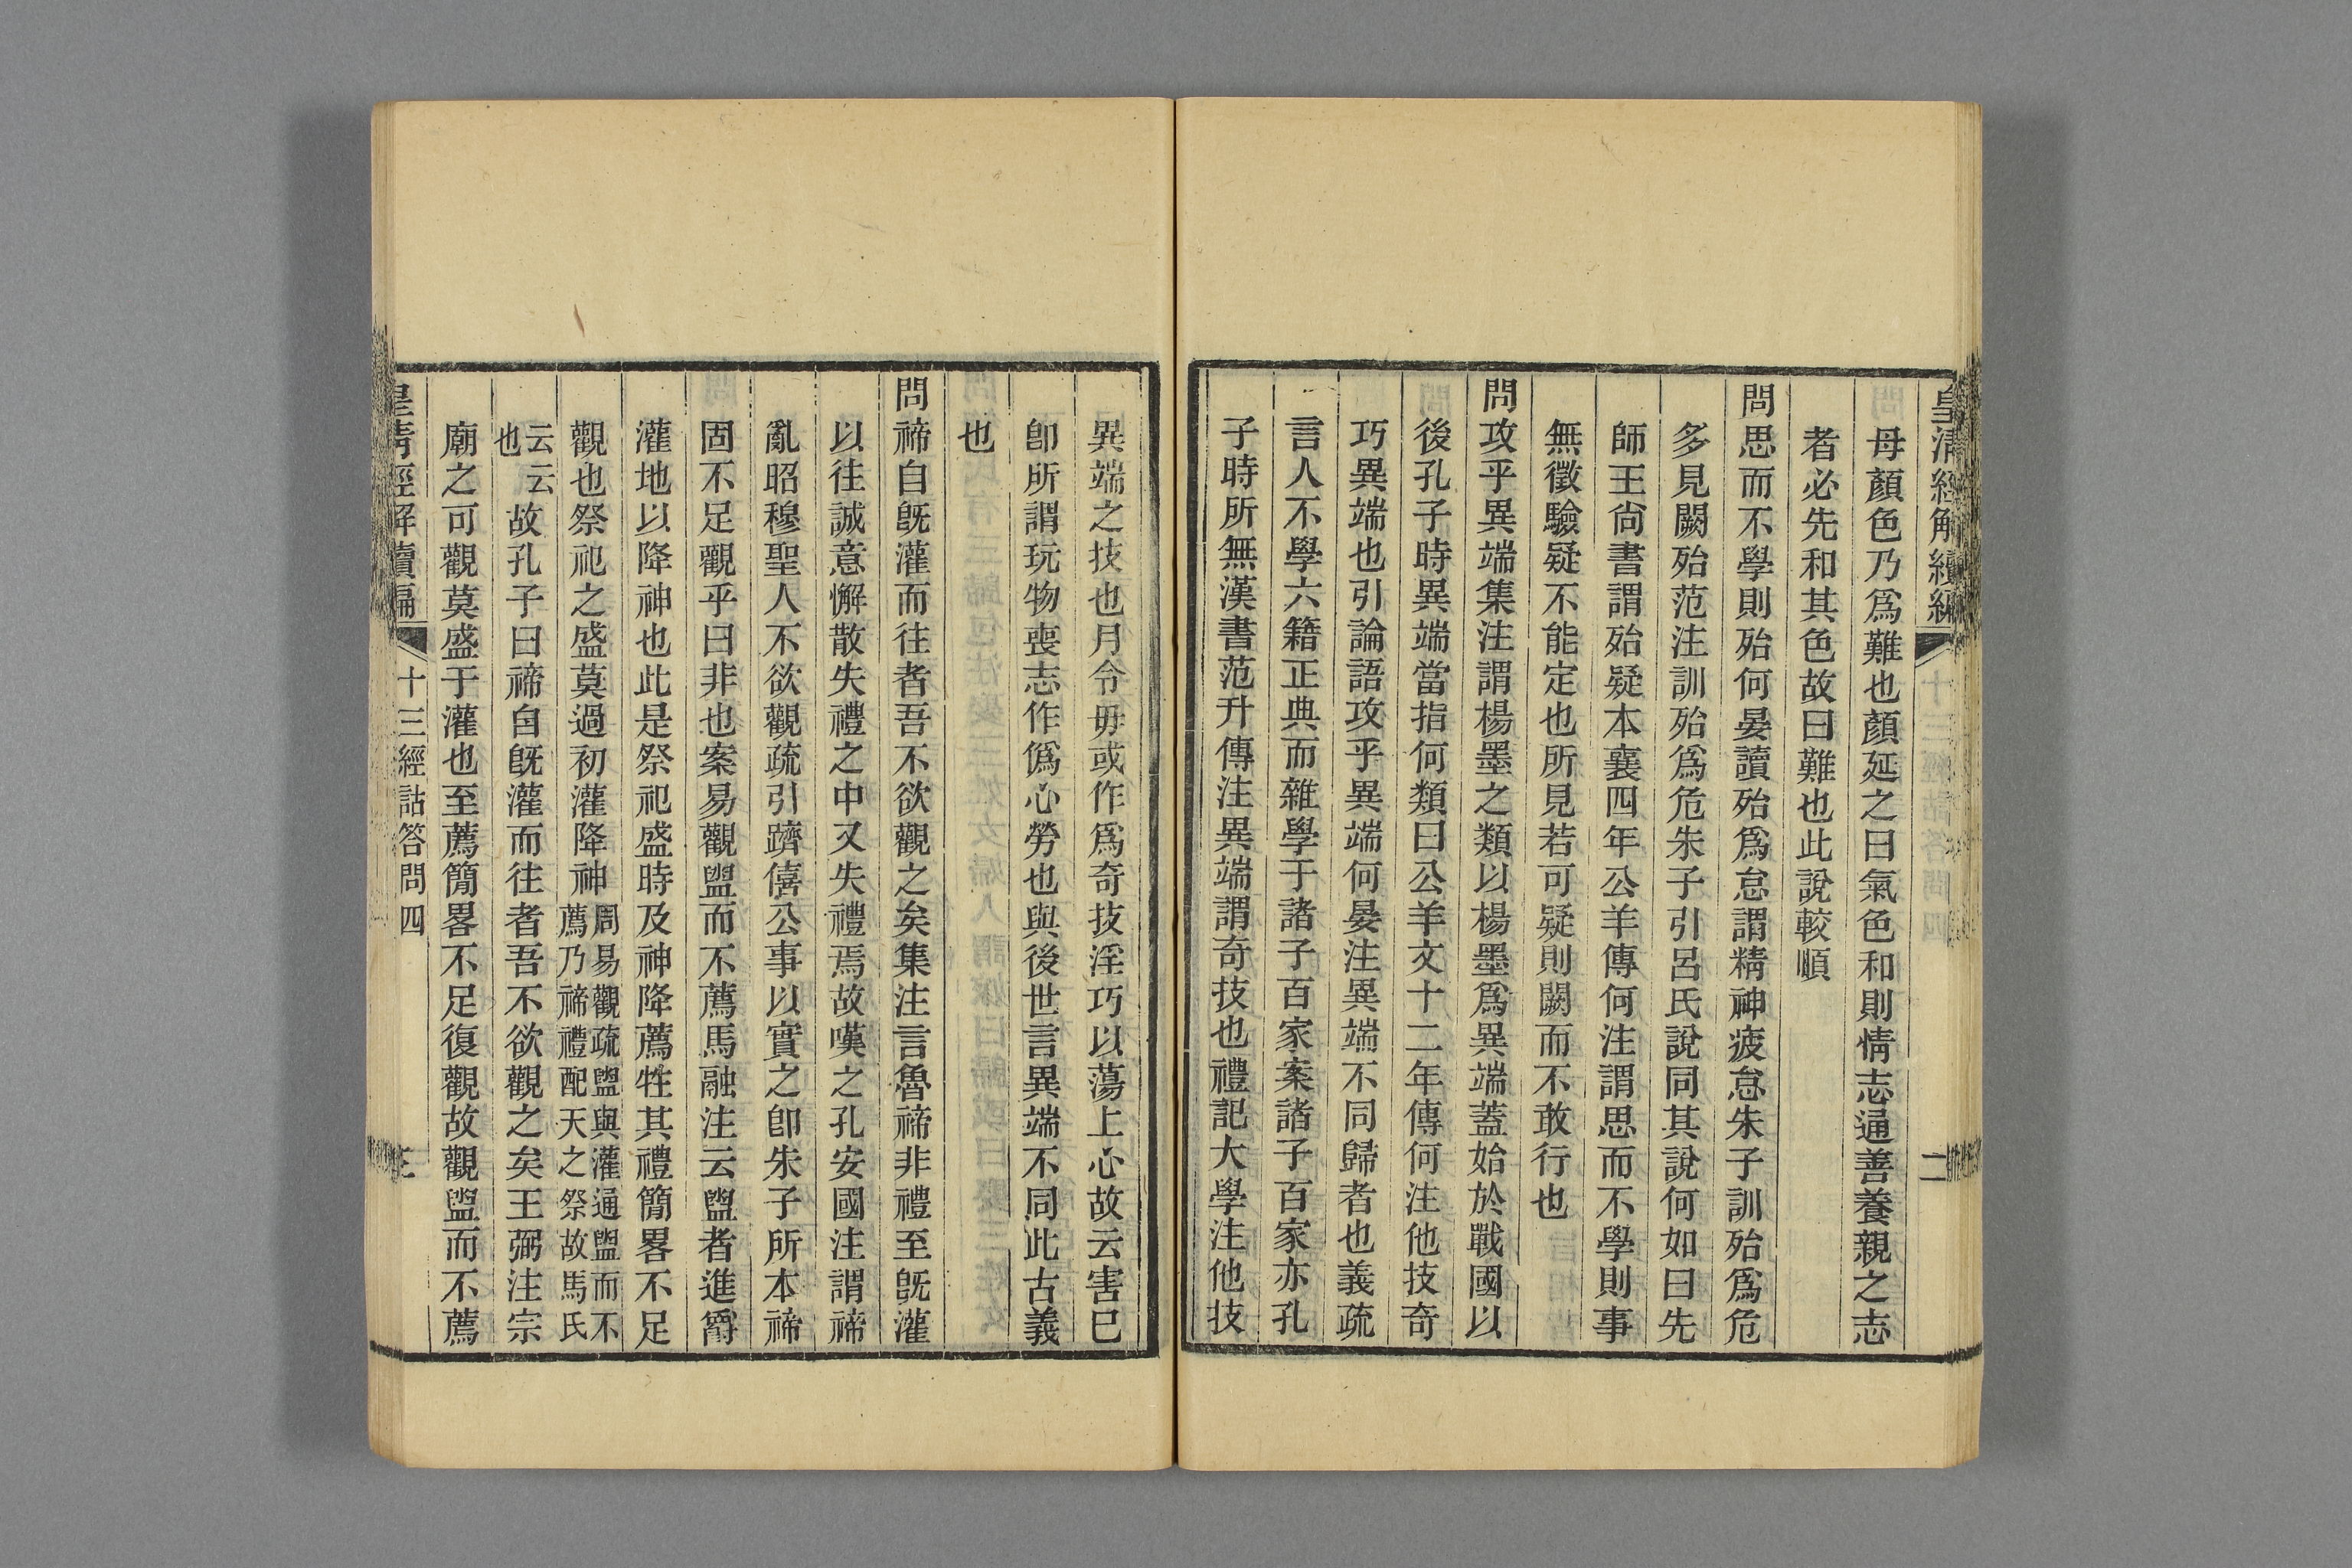 皇清經解續編
二
母顏色乃爲難也顏延之曰氣色和則情志通善養親之志
者必先和其色故曰難也此說較順
問思而不學則殆何晏讀殆爲怠謂精神疲怠朱子訓殆爲危
多見闕殆范注訓殆爲危朱子引呂氏說同其說何如曰先
師王尙書謂殆疑本襄四年公羊傳何注謂思而不學則事
無徵驗疑不能定也所見若可疑則闕而不敢行也
問攻乎異端集注謂楊墨之類以楊墨爲異端蓋始於戰國以
後孔子時異端當指何類曰公羊文十二年傳何注他技奇
巧異端也引論語攻乎異端何晏注異端不同歸者也義疏
言人不學六籍正典而雜學于諸子百家案諸子百家亦孔
子時所無漢書范升傳注異端謂奇技也禮記大學注他技
異端之技也月令毋或作爲奇技淫巧以蕩上心故云害已
卽所謂玩物喪志作僞心勞也與後世言異端不同此古義
也
問禘自旣灌而往者吾不欲觀之矣集注言魯禘非禮至旣灌
以往誠意懈散失禮之中又失禮焉故嘆之孔安國注謂禘
亂昭穆聖人不欲觀疏引躋僖公事以實之卽朱子所本禘
固不足觀乎曰非也案易觀盥而不薦馬融注云盥者進爵
灌地以降神也此是祭祀盛時及神降薦牲其禮簡畧不足
觀也祭祀之盛莫過初灌降神周易觀疏盥與灌通盥而不
薦乃禘禮配天之祭故馬氏
云云
也
故孔子曰禘自旣灌而往者吾不欲觀之矣王弼注宗
廟之可觀莫盛于灌也至薦簡畧不足復觀故觀盥而不薦
皇清經解續編
十三經詁答問四
三